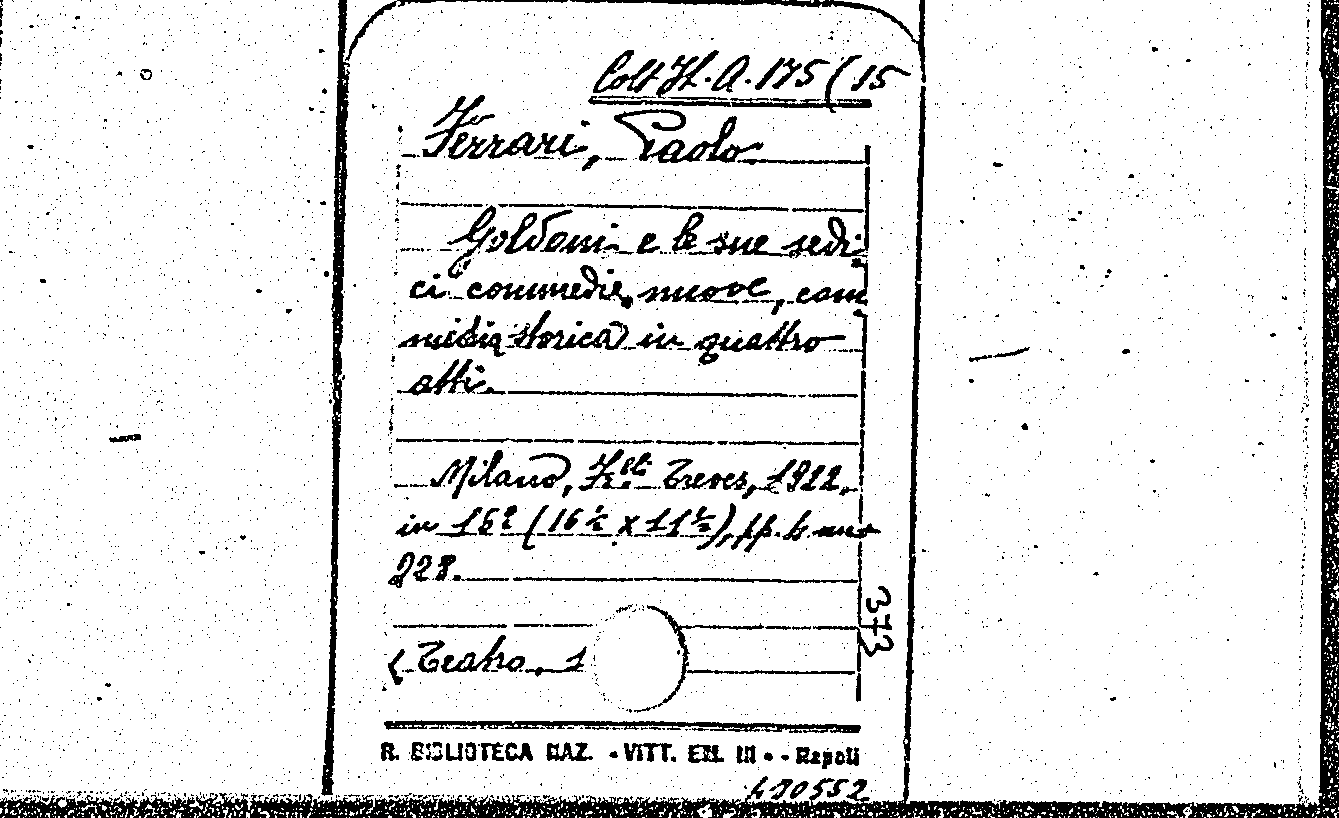 Coll. It. A. 175 (15
Ferrari, Paolo
Goldoni e le sue sedi-
ci commedie nuove, com-
media storica in quattro
atti.
Milano, F.lli Treves, 1922,
in 16º (16 ½ x 11 ½), pp.
228.
(Teatro, 1
373
R. BIBLIOTECA NAZ. "VITT. EM. III" - Napoli
480552